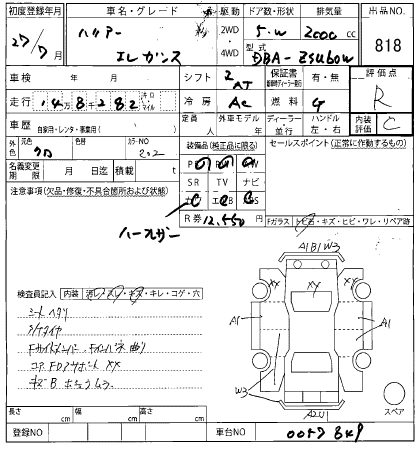 初度登録年月 車名・グレード 駆動 ドア数・形状 排気量 出品NO.
27/7月 ハリアー 2WD・4WD 5.W 2000 cc 818
エレガンス 型式 DBA-ZSU60W
車検 年 月 シフト AT 保証書 有・無 評価点
走行 14万8千282 キロ マイル 冷房 AC 燃料 G R
車歴 自家用・レンタ・事業用( ) 定員 人 外車モデル 年 ディーラー 並行 ハンドル 左・右 内装評価 C
外色 元色 クロ 色替 カラーNO 202 装備品(純正品に限る) セールスポイント(正常に作動するもの)
名義変更期限 月 日迄 積載 t PS PW AW
注意事項(欠品・修復・不具合箇所および状態) SR TV ナビ
エアB ABS
R券 12,550円
ハーフレザー Fガラス トビ石・キズ・ヒビ・ワレ・リペア跡
A1B1W3
検査員記入 内装 汚レ・スレ・キズ・キレ・コゲ・穴
シートヘタリ A1 XX XX A1
Fサイドメンバー Fインパネ曲り
コアサポートXX W3
キズB
A2U1 スペア
長さ cm 幅 cm 高さ cm
登録NO 車台NO